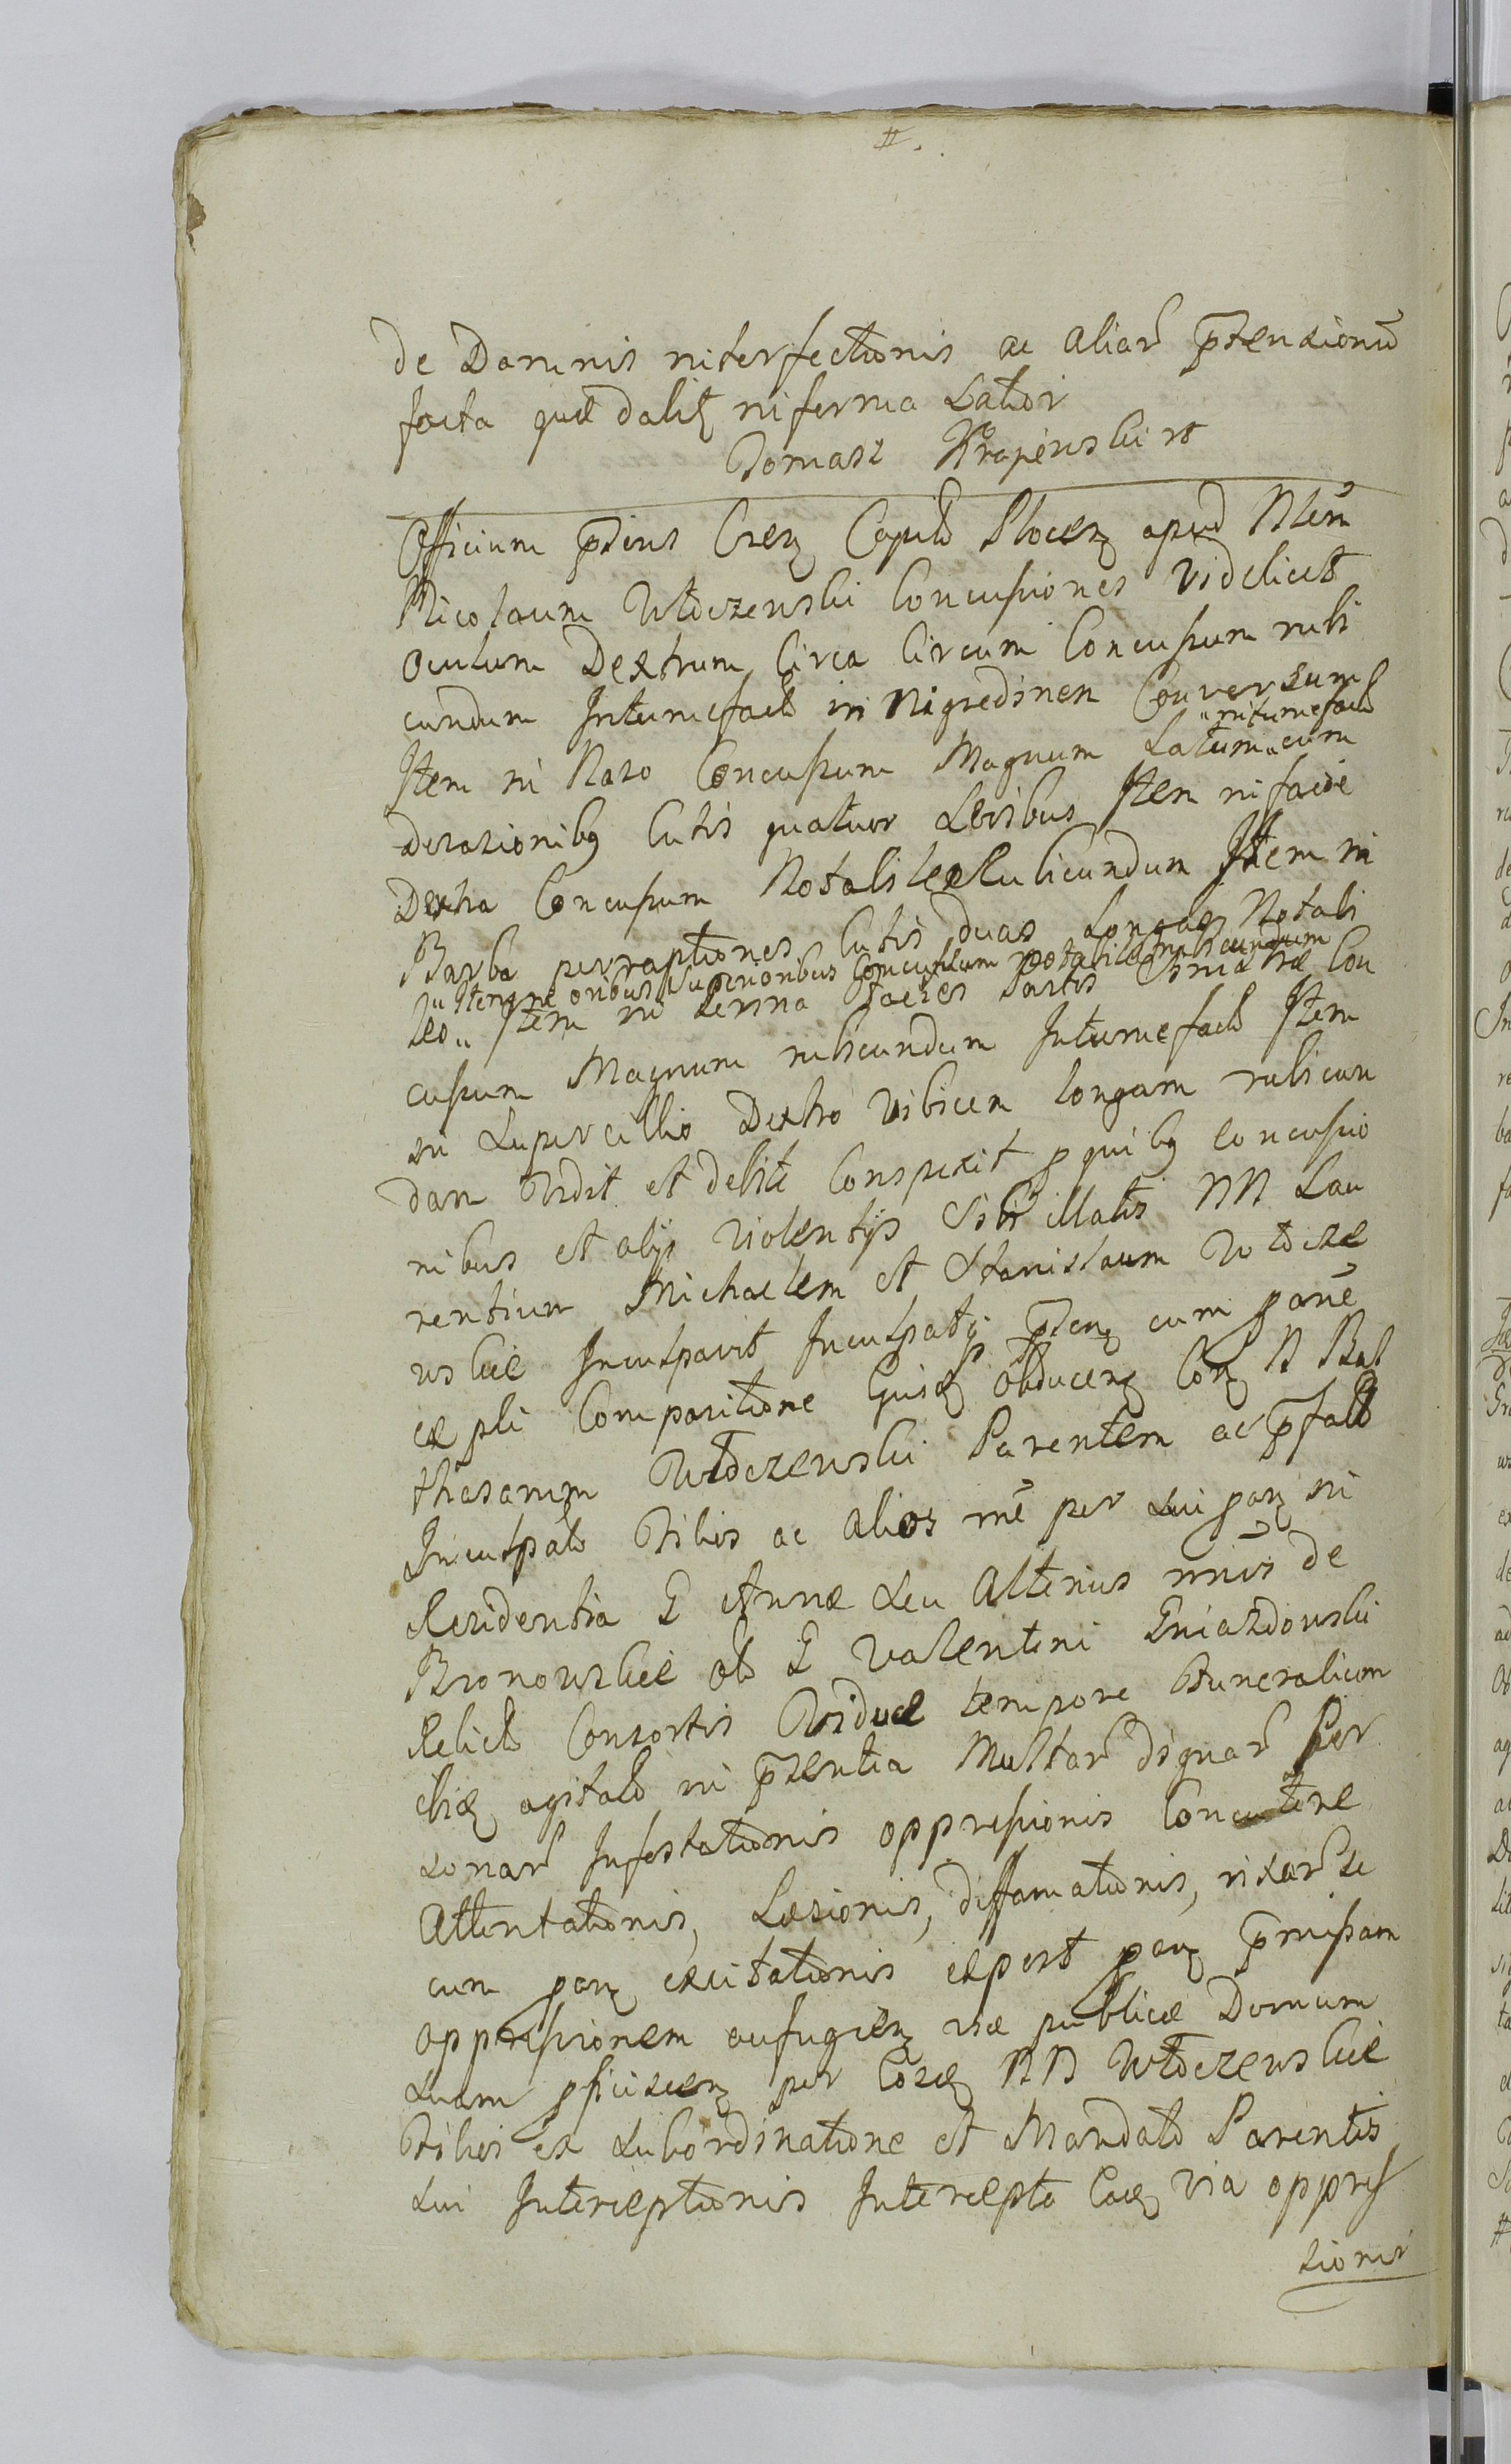 #.
de Damnis interfectionis ac aliar ptensionu
facta quæ dalis inferma Lator
Tomasz Krapiewski rt
Officium pñs Cren Capitl Plocen apud Nlem
Nicolaum Włoczewski Concussiones videlicet
oculum Dextrum Circa Circum Concussum rubi
cundum Intumefact in Nigredinem Conversum
Item in Naso Concussum Magnum Latum "intumefact" cum
derasionibq Cutis quatuor Levibus Item in facie
Dextra Concussum Notabile Rubicundum Item in
Barba perraptiones Cutis duas Longas Notabi
"Item in oribus Superioribus Concussum notabile rubicundum
les" Item in Lerina faciei Partis Sinistræ Con
cussum Magnum rubicundum Intumefact Item
in Supercillio Dextro Vibicem longam rubicun
dam Vidit et debite Conspexit p quibq concussio
nibus et alijs violentijs Sibi illatis NN Lau
rentium Michaelem et Stanislaum Włocze
wskie Inculpavit Inculpatq pten cum pane
expli Comparitione Ejusd Obducen Con N Bal
thasarum Włoczewski Parentem ac pfatt
Inculpat Filios ac alios me per Lui pan in
Residentia G Annæ Leu Alterius nnis de
Bronowskie olt G Valentini Gniazdowski
Relict Consortis Viduæ tempore Funeralium
ibid agitat in pzentia Multar dignar Per
sonar Infestationis oppressionis Concutere
Attentationis, Læsionis, diffamationis, rixar se
cum pan excitationis expost pan pmissam
oppressionem aufugien viæ publicæ Domum
Suam pficiscen per Cosd NN Włoczewskie
Filios ex Subordinatione et Mandato Parentis
Sui Interceptionis Intercepta Ead via oppres
sionis